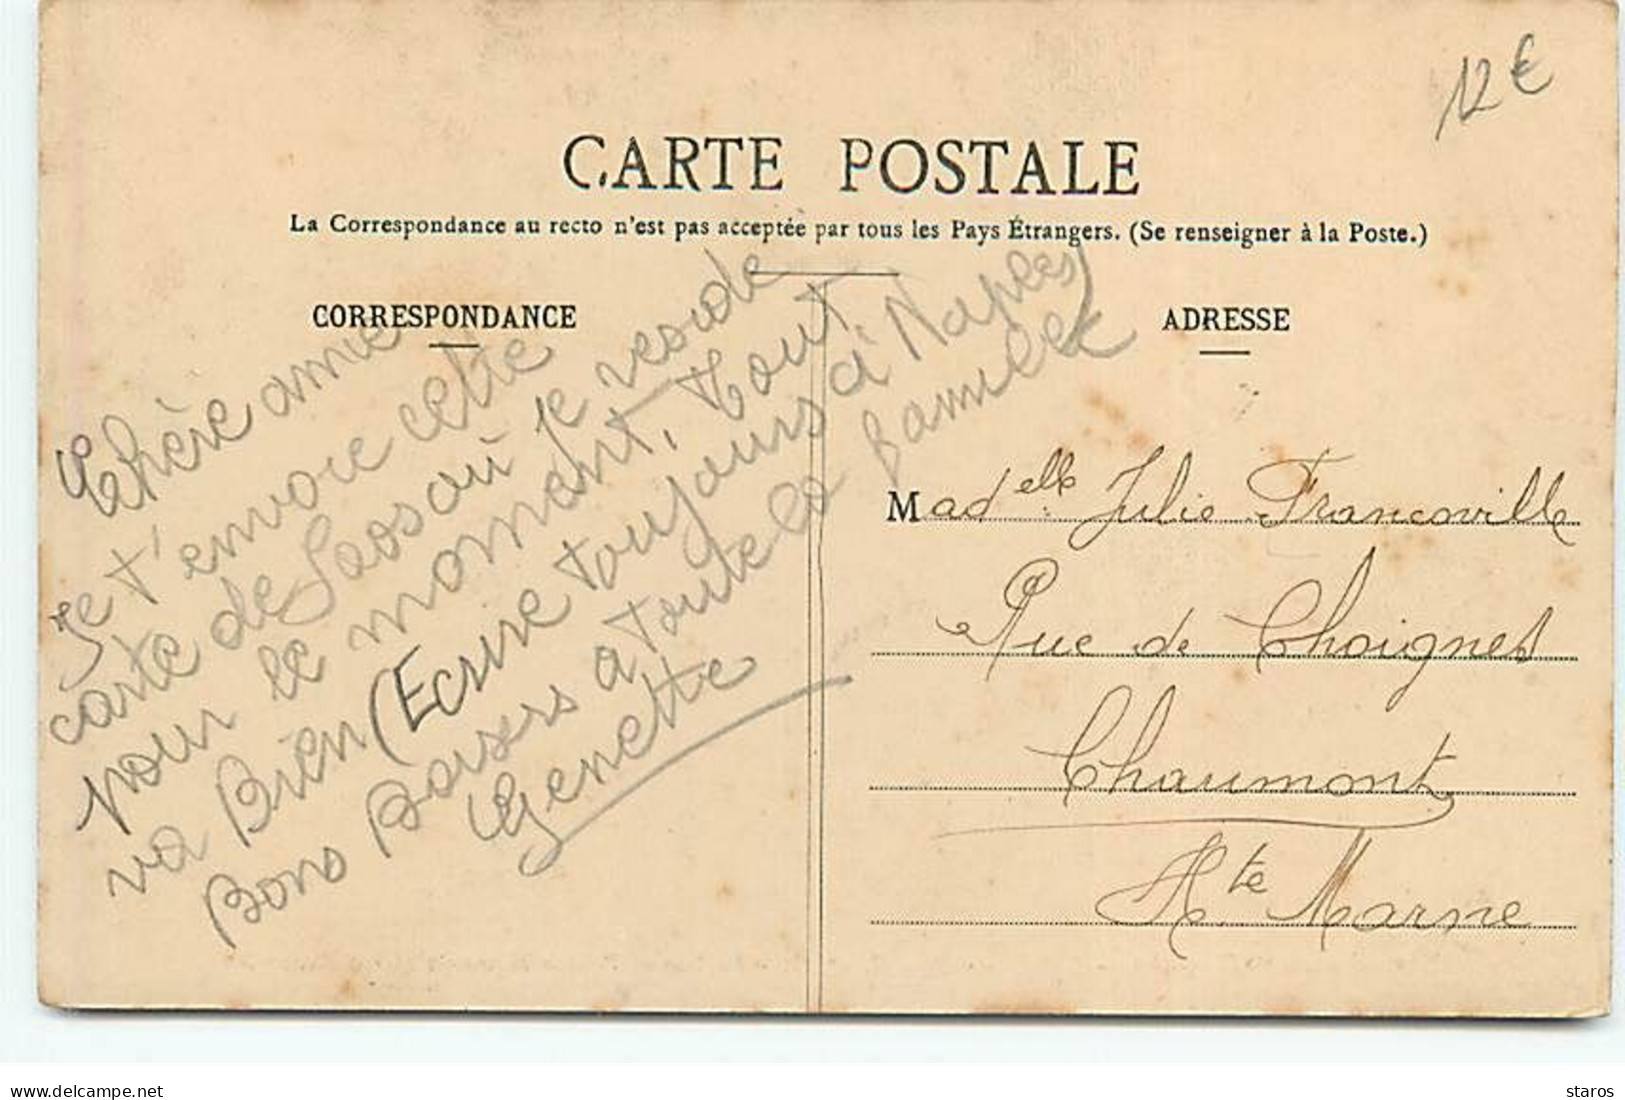 12 €
CARTE POSTALE
La Correspondance au recto n'est pas acceptée par tous les Pays Étrangers. (Se renseigner à la Poste.)
CORRESPONDANCE
Chère amie
Je t'envoie cette
carte de Laos où je reside
pour le momont, tout
va Bien (Ecrire toujours à Naples)
Bons Baisers a toute la famille
Genette
ADRESSE
Madelle Julie Francoville
Rue de Choignes
Chaumont
Hte Marne
delcampe.net
staros